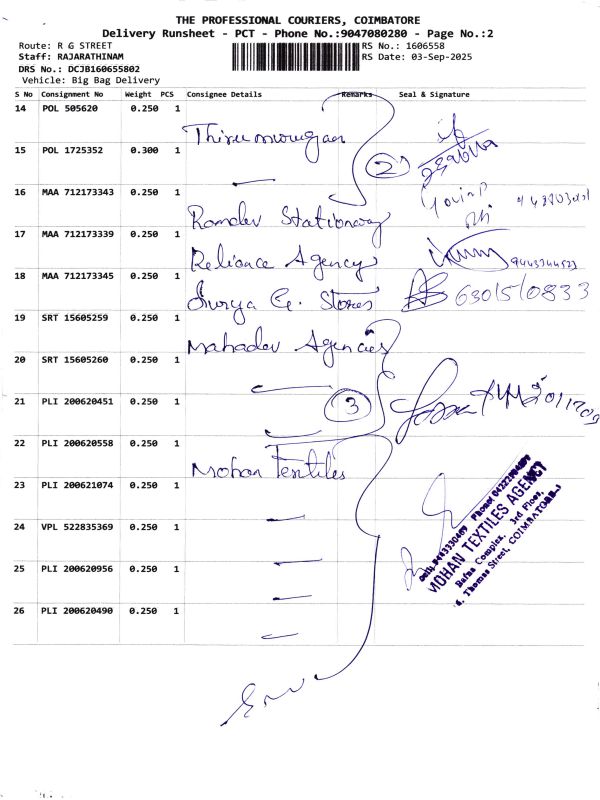 THE PROFESSIONAL COURIERS, COIMBATORE
Delivery Runsheet - PCT - Phone No.:9047080280 - Page No.:2
Route: R G STREET RS No.: 1606558
Staff: RAJARATHINAM RS Date: 03-Sep-2025
DRS No.: DCJB160655802
Vehicle: Big Bag Delivery
S No Consignment No Weight PCS Consignee Details Remarks Seal & Signature
14 POL 505620 0.250 1 Thirumurugan
15 POL 1725352 0.300 1 2
16 MAA 712173343 0.250 1 Ramdev Stationary
17 MAA 712173339 0.250 1 Reliance Agency 9443344523
18 MAA 712173345 0.250 1 Surya G. Stores 6301510833
19 SRT 15605259 0.250 1 Mahadev Agencies
20 SRT 15605260 0.250 1
21 PLI 200620451 0.250 1 3
22 PLI 200620558 0.250 1 Mohan Textiles
23 PLI 200621074 0.250 1
24 VPL 522835369 0.250 1
25 PLI 200620956 0.250 1
26 PLI 200620490 0.250 1
MOHAN TEXTILES AGENCY
Bafna Complex, 3rd Floor,
Thomas Street, COIMBATORE